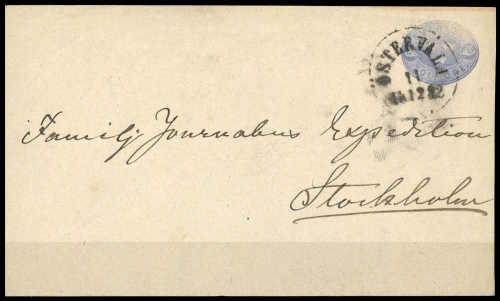 ÖSTERVALA
11
12
Familj Journalens Expedition
Stockholm